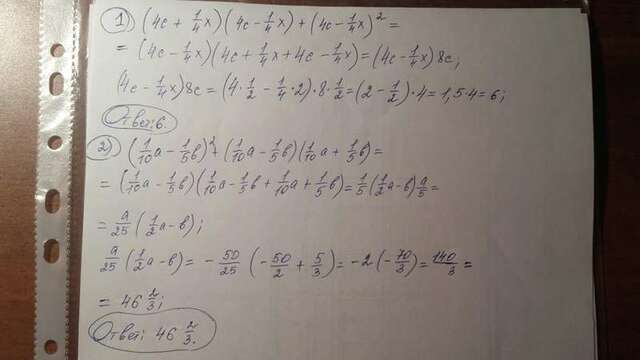 1) (4c + 1/4x)(4c - 1/4x) + (4c - 1/4x)² =
= (4c - 1/4x)(4c + 1/4x + 4c - 1/4x) = (4c - 1/4x)8c;
(4c - 1/4x)8c = (4·1/2 - 1/4·2)·8·1/2 = (2 - 1/2)·4 = 1,5·4 = 6;
Ответ: 6.
2) (1/10a - 1/5b)² + (1/10a - 1/5b)(1/10a + 1/5b) =
= (1/10a - 1/5b)(1/10a - 1/5b + 1/10a + 1/5b) = 1/5(1/2a - b)a/5 =
= a/25(1/2a - b);
a/25(1/2a - b) = -50/25(-50/2 + 5/3) = -2(-70/3) = 140/3 =
= 46 2/3;
Ответ: 46 2/3.